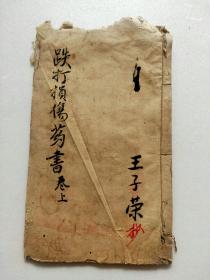 跌打損傷药書卷上
王子荣抄